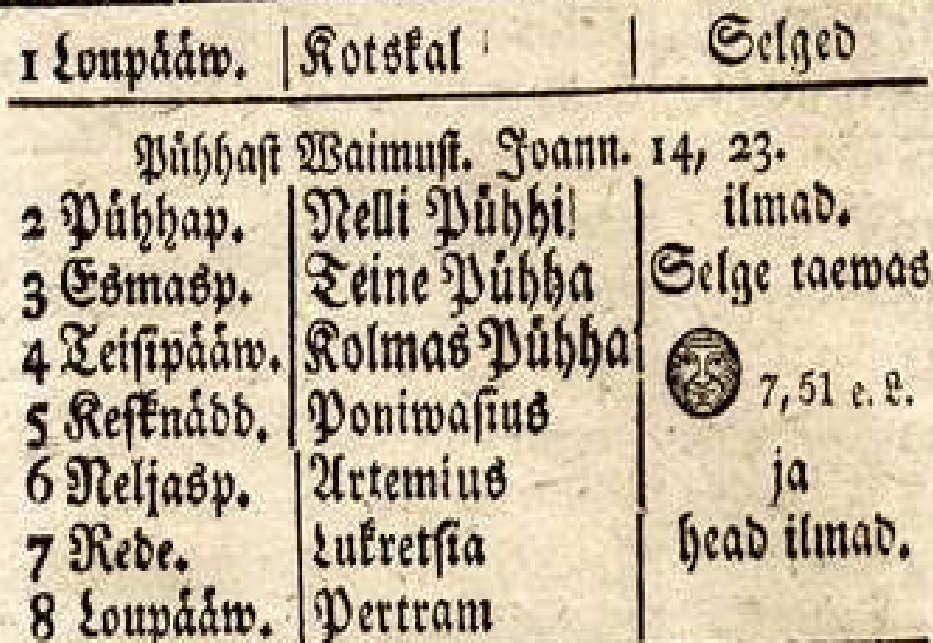 1 Loupääw. Kotskal Selged
Pühhast Waimust. Joann. 14, 23.
2 Pühhap. Nelli Pühhi ilmad.
3 Esmasp. Teine Pühha Selge taewas
4 Teisipääw. Kolmas Pühha
5 Kesknädd. Poniwasius 7,51 e. L.
6 Neljasp. Artemius ja
7 Rede. Lukretsia head ilmad.
8 Loupääw. Pertram